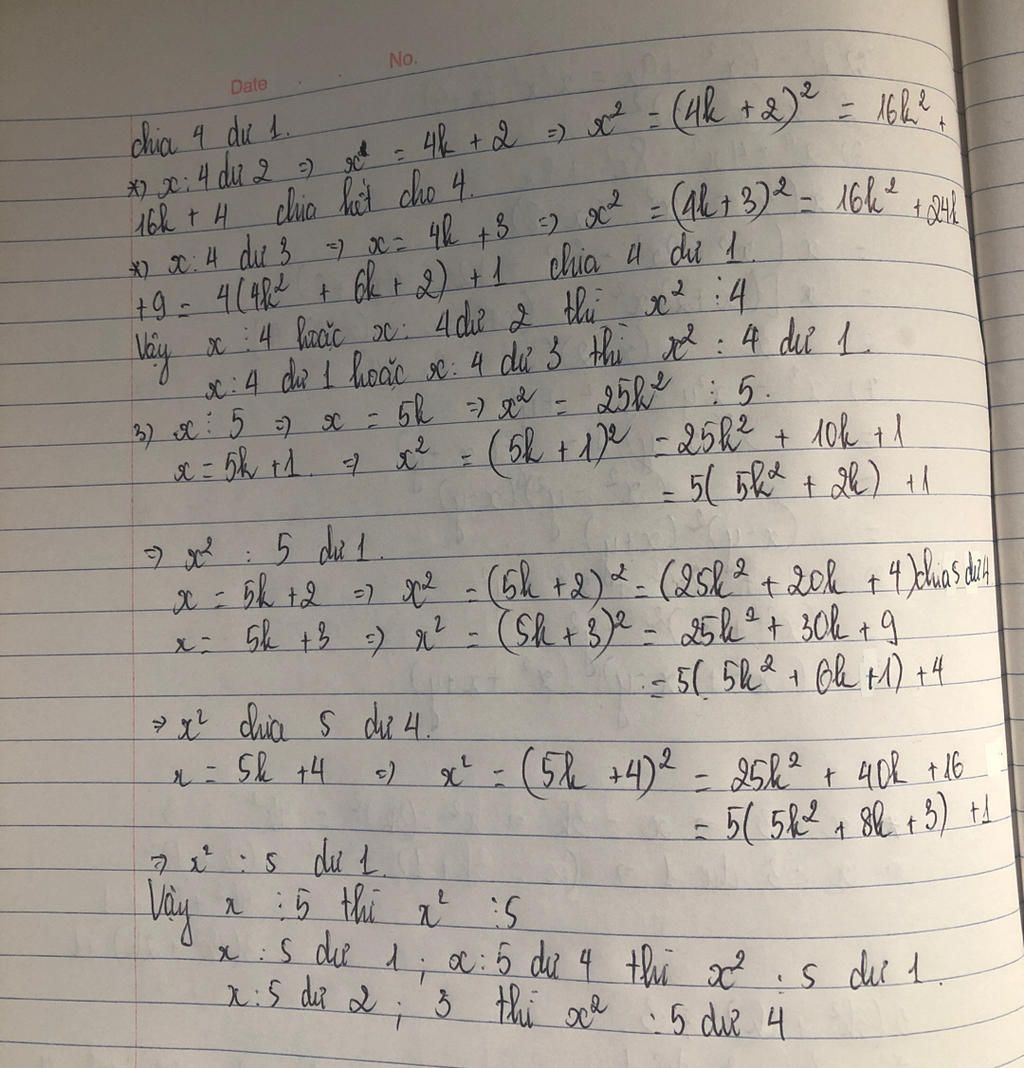 No.
Date
chia 4 dư 1.
*) x : 4 dư 2 => x = 4k + 2 => x² = (4k + 2)² = 16k² +
16k + 4 chia hết cho 4.
*) x : 4 dư 3 => x = 4k + 3 => x² = (4k + 3)² = 16k² + 24k
+ 9 = 4(4k² + 6k + 2) + 1 chia 4 dư 1.
Vậy x ⋮ 4 hoặc x : 4 dư 2 thì x² ⋮ 4
x : 4 dư 1 hoặc x : 4 dư 3 thì x² : 4 dư 1.
3) x ⋮ 5 => x = 5k => x² = 25k² ⋮ 5.
x = 5k + 1. => x² = (5k + 1)² = 25k² + 10k + 1
= 5( 5k² + 2k) + 1
=> x² : 5 dư 1.
x = 5k + 2 => x² = (5k + 2)² = (25k² + 20k + 4) chia 5 dư 4
x = 5k + 3 => x² = (5k + 3)² = 25k² + 30k + 9
= 5( 5k² + 6k + 1) + 4
=> x² chia 5 dư 4.
x = 5k + 4 => x² = (5k + 4)² = 25k² + 40k + 16
= 5( 5k² + 8k + 3) + 1
=> x² : 5 dư 1.
Vậy x ⋮ 5 thì x² ⋮ 5
x : 5 dư 1 ; x : 5 dư 4 thì x² : 5 dư 1.
x : 5 dư 2 ; 3 thì x² : 5 dư 4